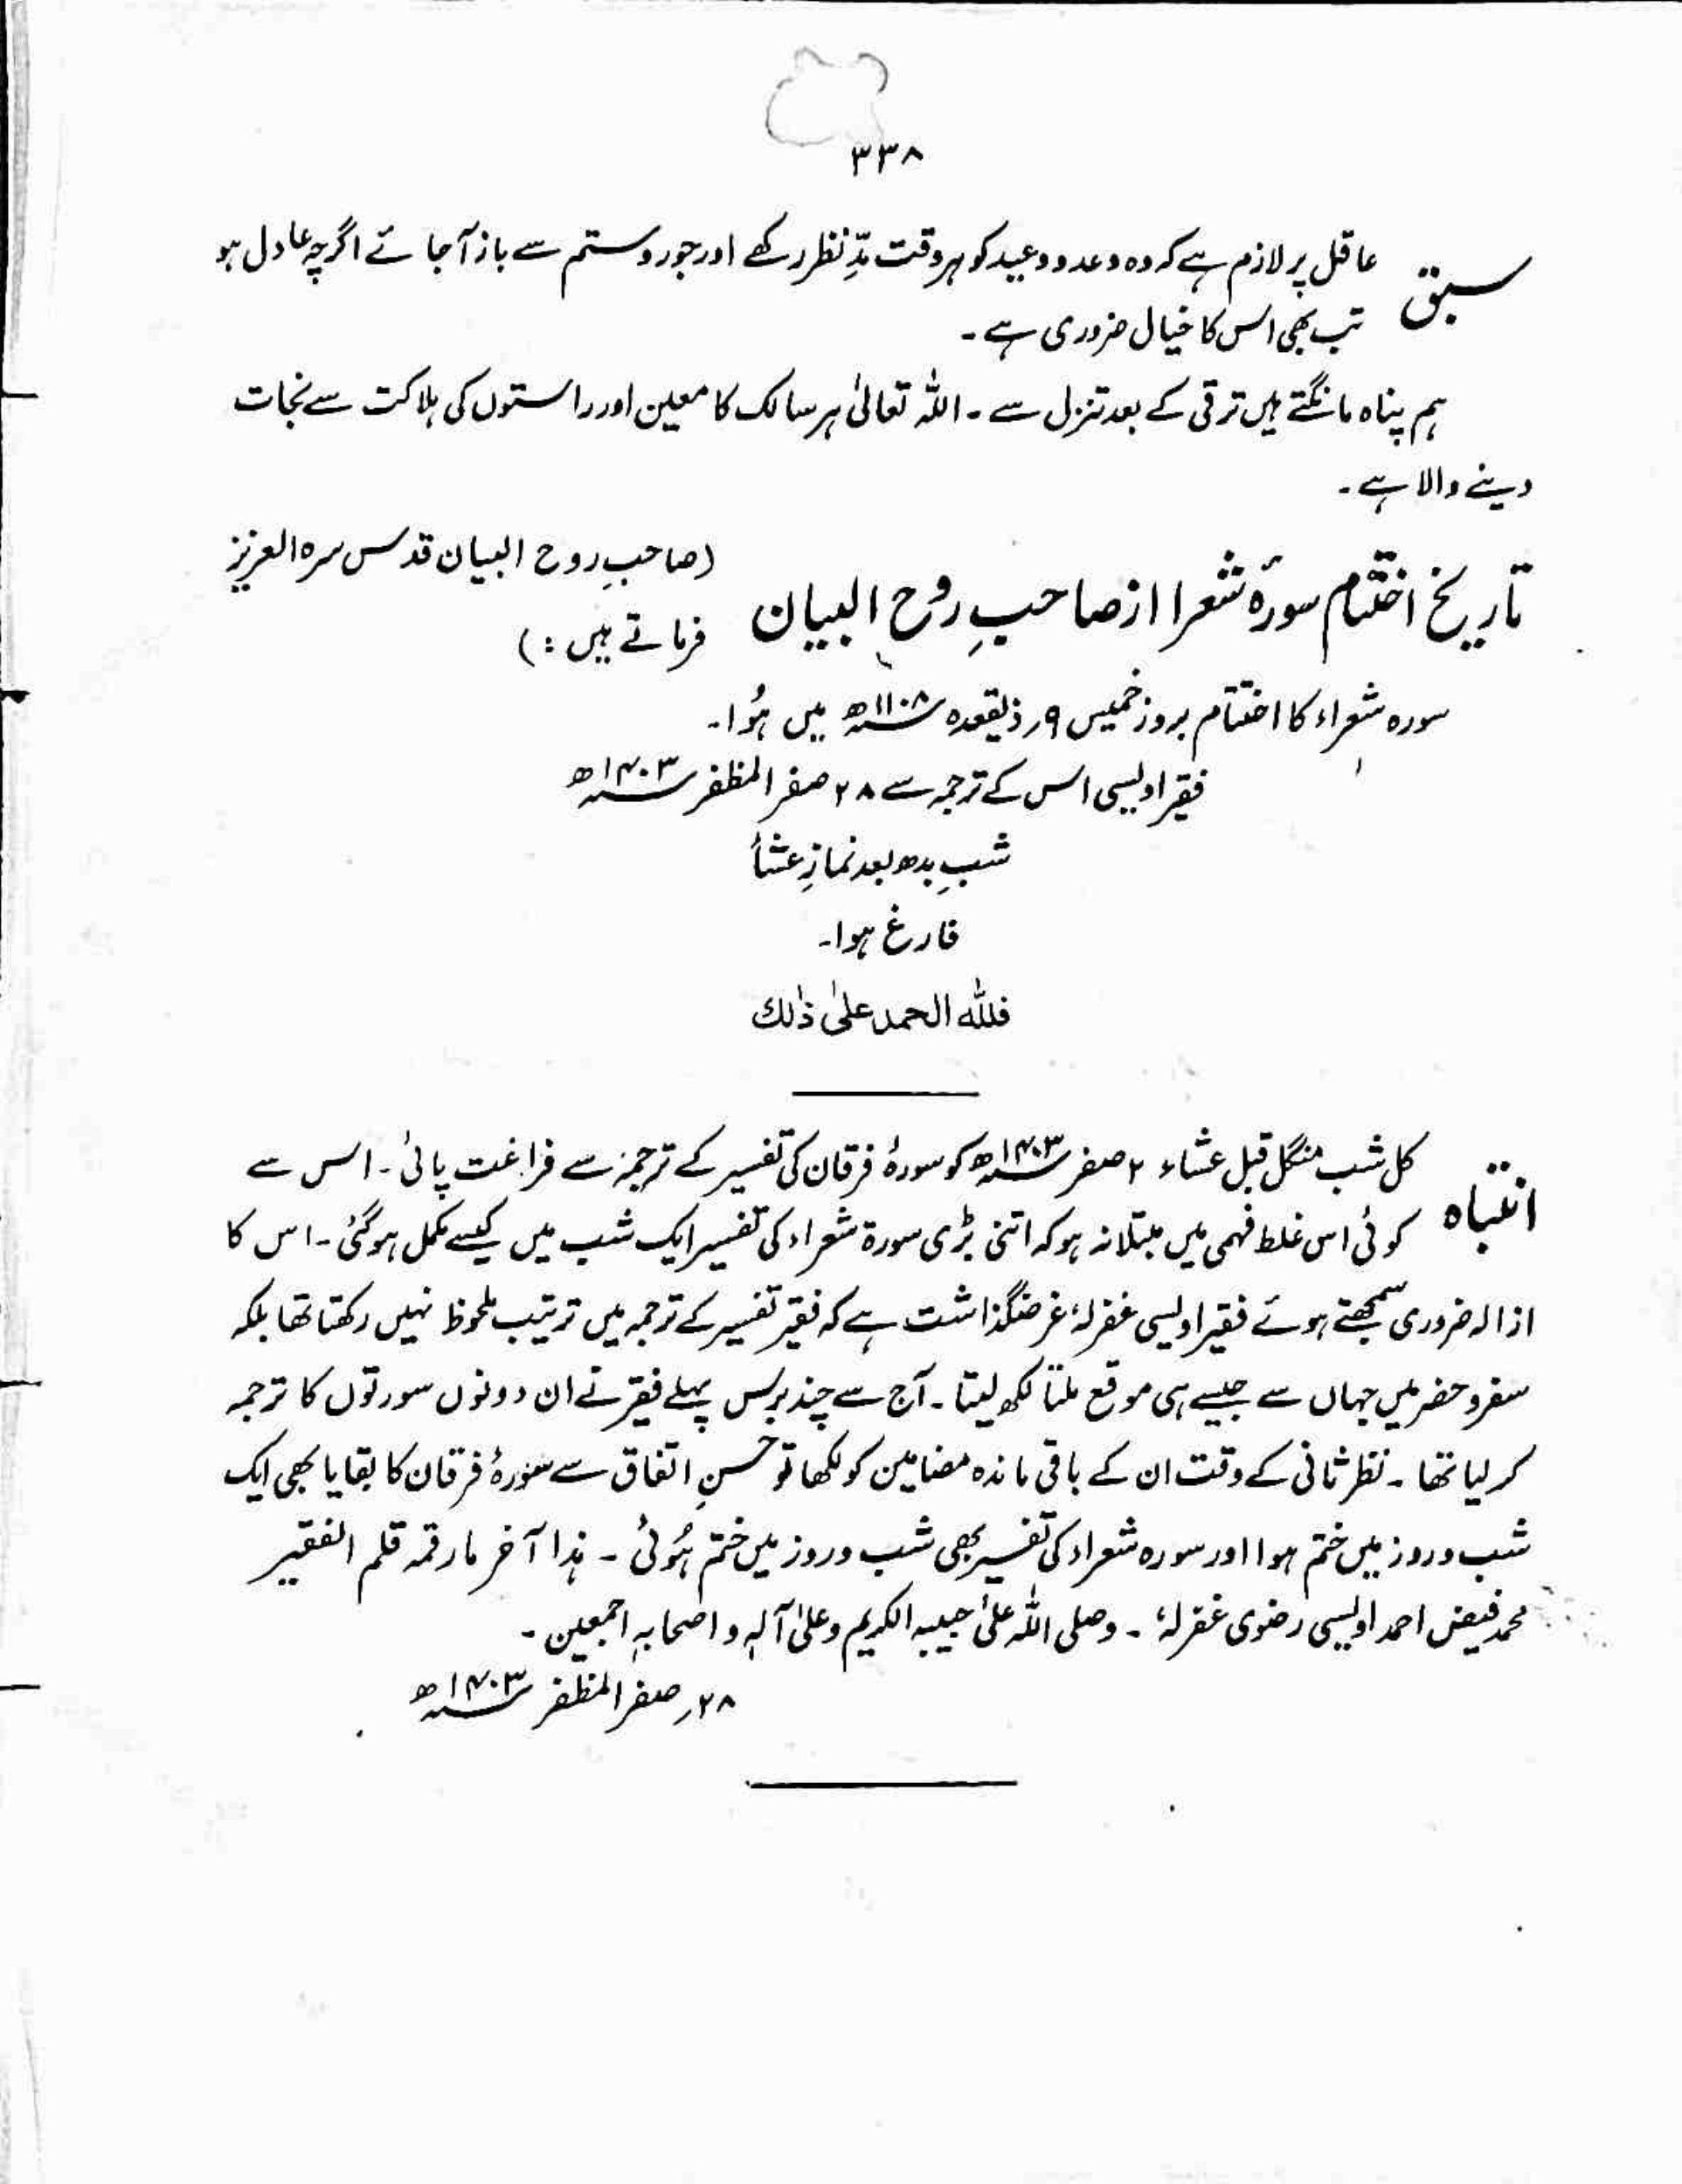 ۳۳۸
سبق عاقل پر لازم ہے کہ وہ وعدہ و وعید کو ہر وقت مدِّ نظر رکھے اور جور و ستم سے باز آ جائے اگرچہ عادل ہو
تب بھی اس کا خیال ضروری ہے۔
ہم پناہ مانگتے ہیں ترقی کے بعد تنزل سے۔ اللہ تعالیٰ ہر سالک کا معین اور راستوں کی ہلاکت سے نجات
دینے والا ہے۔
تاریخ اختتام سورۂ شعرا از صاحبِ روح البیان (صاحبِ روح البیان قدس سرہ العزیز
فرماتے ہیں :)
سورہ شعراء کا اختتام بروز خمیس ۹؍ ذیقعدہ ۱۱۰۸ھ میں ہُوا۔
فقیر اویسی اس کے ترجمہ سے ۲۸ صفر المظفر ۱۴۰۳ھ
شبِ بدھ بعد نمازِ عشاً
فارغ ہوا۔
فللّٰہ الحمد علیٰ ذٰلک
انتباہ کل شب منگل قبل عشاء ۲ صفر ۱۴۰۳ھ کو سورۂ فرقان کی تفسیر کے ترجمہ سے فراغت پائی۔ اس سے
کوئی اس غلط فہمی میں مبتلا نہ ہو کہ اتنی بڑی سورۃ شعراء کی تفسیر ایک شب میں کیسے مکمل ہو گئی۔ اس کا
ازالہ ضروری سمجھتے ہوئے فقیر اویسی غفرلہٗ عرضگذاشت ہے کہ فقیر تفسیر کے ترجمہ میں ترتیب ملحوظ نہیں رکھتا تھا بلکہ
سفر و حضر میں جہاں سے جیسے ہی موقع ملتا لکھ لیتا۔ آج سے چند برس پہلے فقیر نے ان دونوں سورتوں کا ترجمہ
کر لیا تھا۔ نظر ثانی کے وقت ان کے باقی ماندہ مضامین کو لکھا تو حسنِ اتفاق سے سورۂ فرقان کا بقایا بھی ایک
شب و روز میں ختم ہوا اور سورہ شعراء کی تفسیر بھی شب و روز میں ختم ہُوئی۔ ہٰذا آخر ما رقمہ قلم الفقیر
محمد فیض احمد اویسی رضوی غفرلہٗ۔ وصلی اللہ علیٰ حبیبہ الکریم وعلیٰ آلہٖ واصحابہٖ اجمعین۔
۲۸؍ صفر المظفر ۱۴۰۳ھ